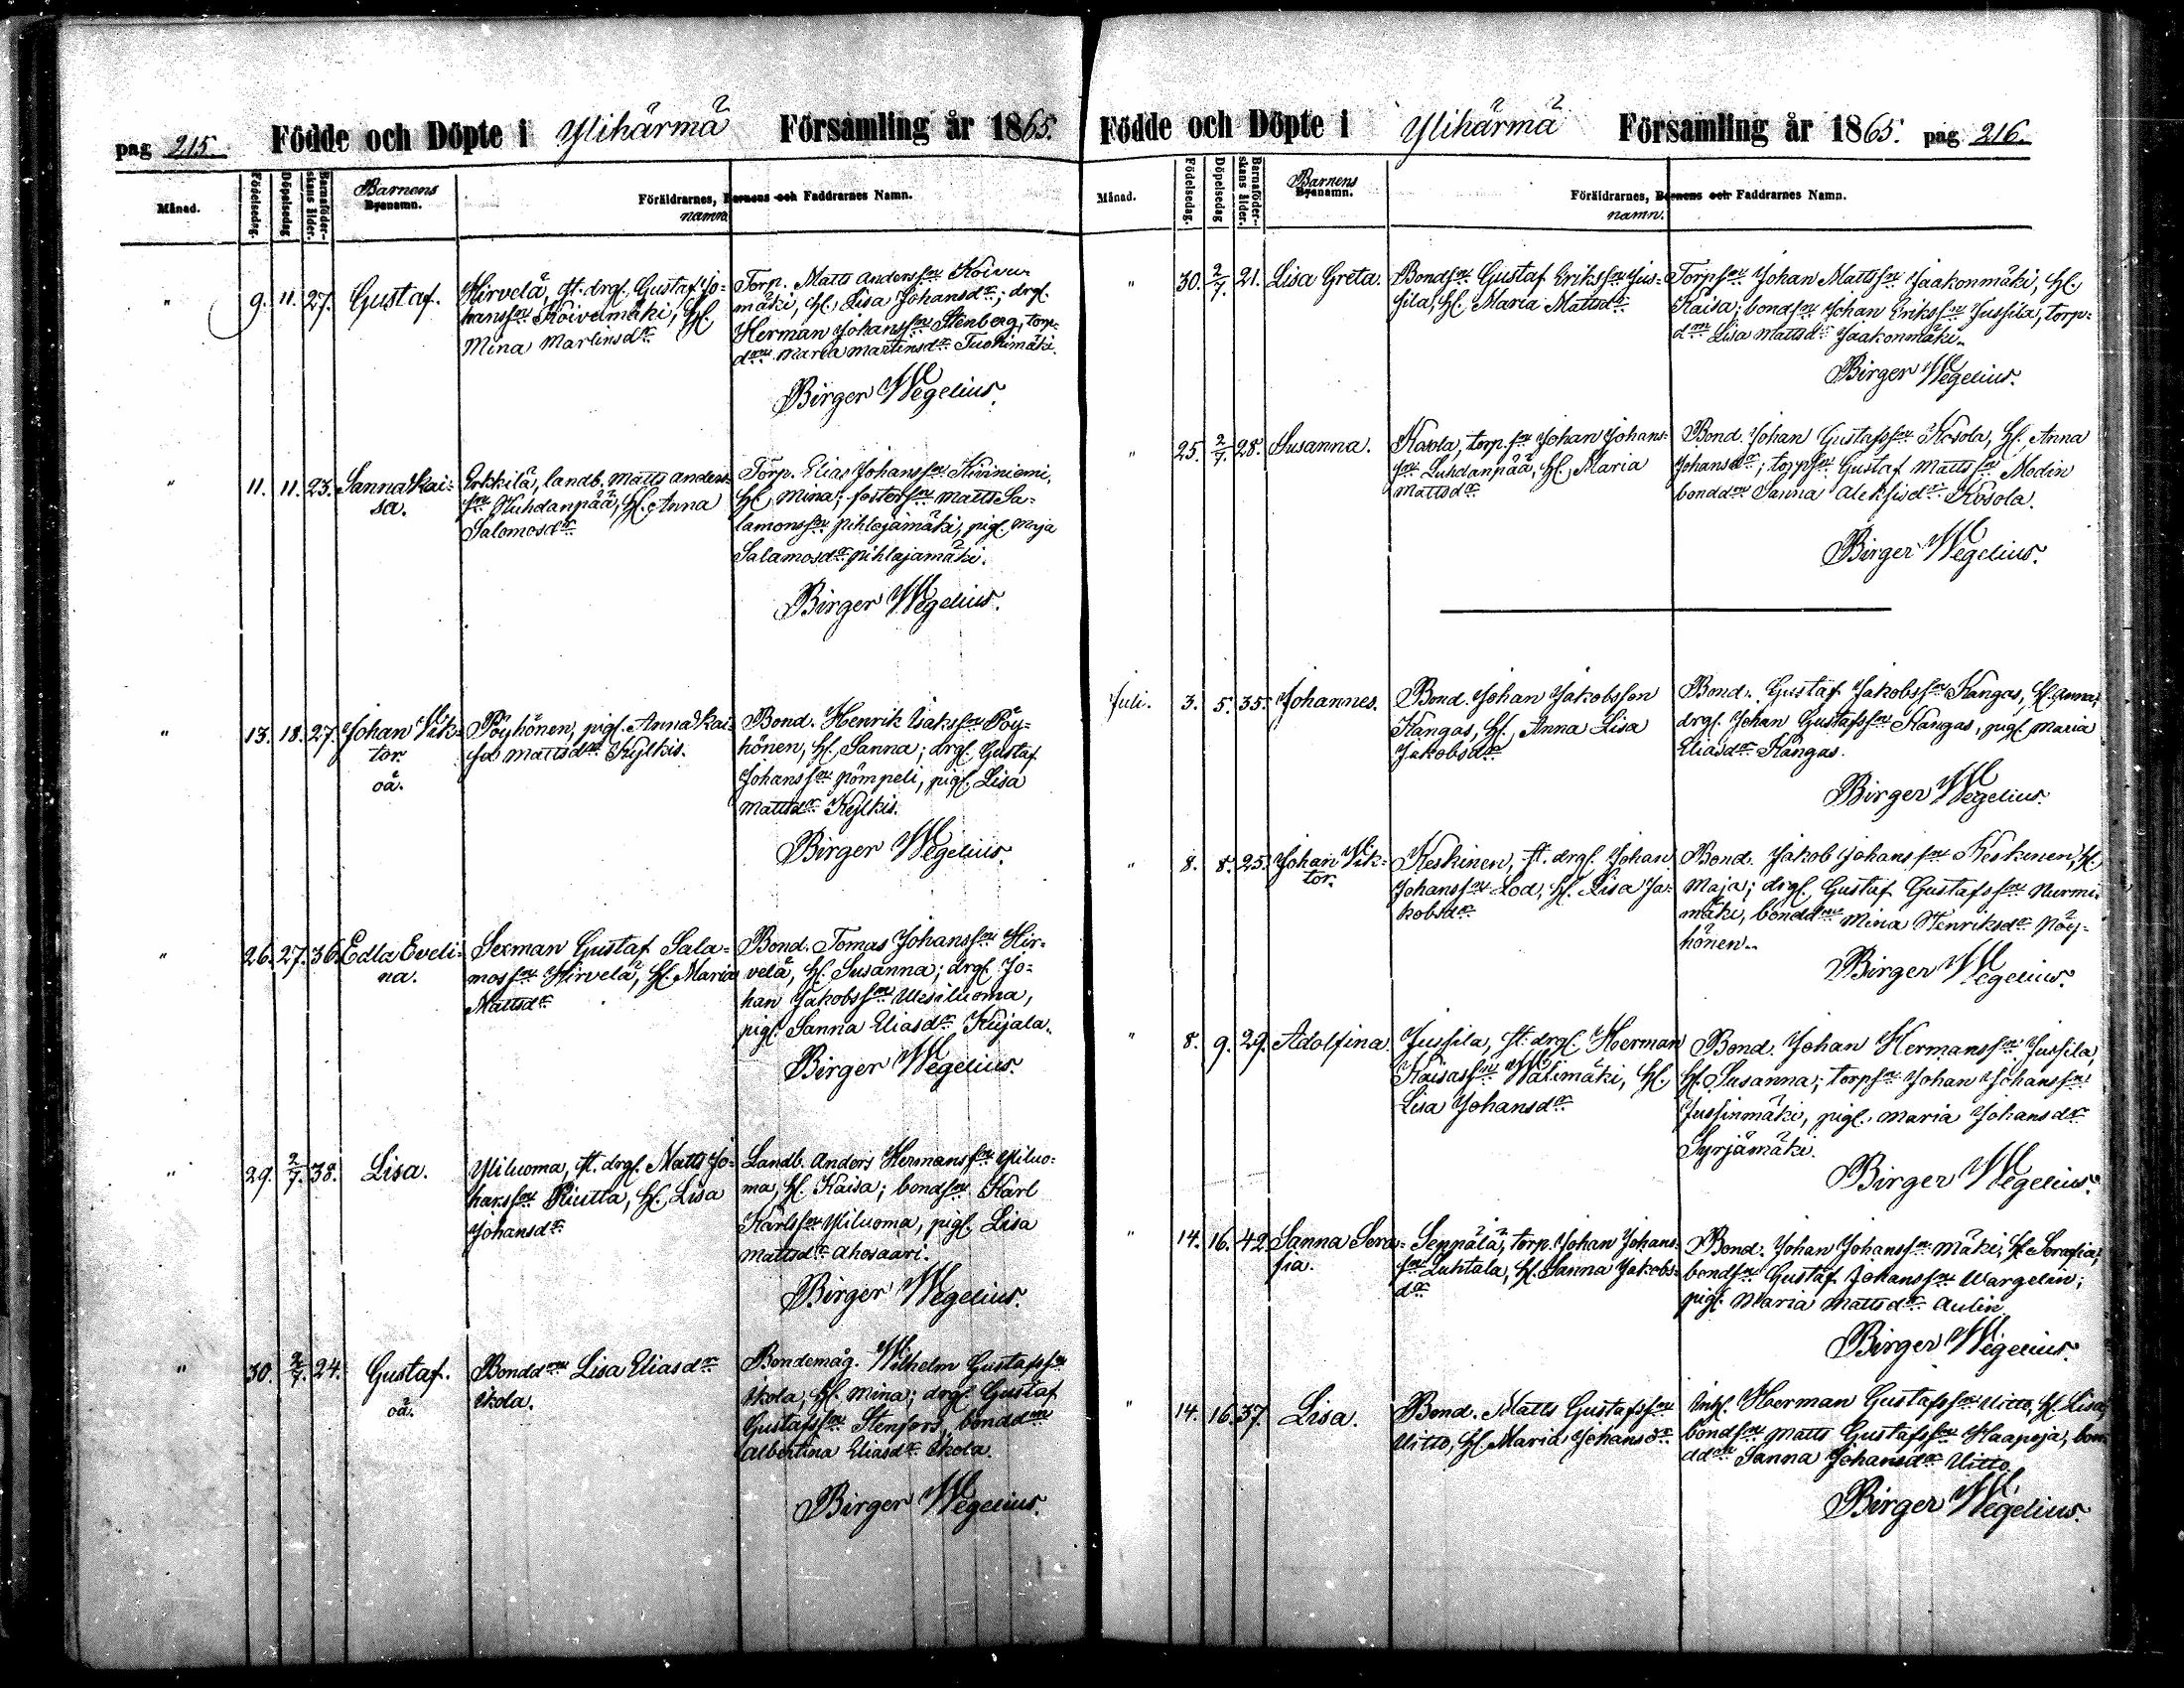 pag 215. Födde och Döpte i Ylihärmä Församling år 1865.
Månad. Födelsedag. Döpelsedag Barnaföder-skans ålder. Barnens Byanamn. Föräldrarnes, Barnens och Faddrarnes Namn.
namn.
" 9. 11. 27. Gustaf.
Hirvelä, ft. drgl. Gustaf Jo-
hansson Koivumäki, Hl.
Mina Martinsdr
Torp. Matts Andersson Koivu-
mäki, Hl. Lisa Johansdr; drgl.
Herman Johansson Stenberg, torp-
dmn Maria Martinsdr Tuokimäki.
Birger Wegelius.
" 11. 11. 23. Sanna Kai-
sa.
Erkkilä, landb. Matts Anders-
son Huhdanpää, Hl. Anna
Salomosdr
Torp. Elias Johansson Kiviniemi,
Hl. Mina; fosterson Matts Sa-
lamonsson Pihlajamäki, pigl. Maja
Salamosdr Pihlajamäki.
Birger Wegelius.
" 13. 18. 27. Johan Vik-
tor.
oä.
Pöyhönen, pigl. Anna Kai-
sa Mattsdr Kylkis.
Bond. Henrik Isaksson Pöy-
hönen, Hl. Sanna; drgl. Gustaf
Johansson Pömpeli, pigl. Lisa
Mattsdr Kylkis.
Birger Wegelius.
" 26. 27. 36. Edla Eveli-
na.
Sexman Gustaf Sala-
mosson Hirvelä, Hl. Maria
Mattsdr
Bond. Tomas Johansson Hir-
velä, Hl. Susanna; drgl. Jo-
han Jakobsson Vesiluoma,
pigl. Sanna Eliasdr Kujala.
Birger Wegelius.
" 29. 2/7. 38. Lisa.
Yliluoma, ft. drgl. Matts Jo-
hansson Riutta, Hl. Lisa
Johansdr
Landb. Anders Hermansson Yliluo-
ma, Hl. Kaisa; bondson Karl
Karlsson Yliluoma, pigl. Lisa
Mattsdr Ahosaari.
Birger Wegelius.
" 30. 2/7. 24. Gustaf.
oä.
Bonddmn Lisa Eliasdr
Ikola.
Bondemåg. Wilhelm Gustafsson
Ikola, Hl. Mina; drgl. Gustaf
Gustafsson Stenfors, bonddmn
Albertina Eliasdr Ikola.
Birger Wegelius.
Födde och Döpte i Ylihärmä Församling år 1865. pag 216.
Månad. Födelsedag. Döpelsedag Barnaföder-skans ålder. Barnens Byanamn. Föräldrarnes, Barnens och Faddrarnes Namn.
namn.
" 30. 2/7. 21. Lisa Greta.
Bondson Gustaf Eriksson Jus-
sila, Hl. Maria Mattsdr
Torpson Johan Mattsson Jaakonmäki, Hl.
Kaisa; bondson Johan Eriksson Jussila, torp-
dmn Lisa Mattsdr Jaakonmäki.
Birger Wegelius.
" 25. 2/7. 28. Susanna.
Kosola, torp.son Johan Johans-
son Luhdanpää, Hl. Maria
Mattsdr
Bond. Johan Gustafsson Kosola, Hl. Anna
Johansdr; torpson Gustaf Mattsson Modin
bonddmn Sanna Aleksisdr Kosola.
Birger Wegelius.
Juli. 3. 5. 35. Johannes.
Bond. Johan Jakobsson
Kangas, Hl. Anna Lisa
Jakobsdr
Bond. Gustaf Jakobsson Kangas, Hl. Anna;
drgl. Johan Gustafsson Kangas, pigl. Maria
Eliasdr Kangas.
Birger Wegelius.
" 8. 8. 25. Johan Vik-
tor.
Keskinen, ft. drgl. Johan
Johansson Lod, Hl. Lisa Ja-
kobsdr
Bond. Jakob Johansson Keskinen, Hl.
Maja; drgl. Gustaf Gustafsson Nurmi-
mäki, bonddmn Mina Henriksdr Pöy-
hönen.
Birger Wegelius.
" 8. 9. 29. Adolfina.
Jussila, ft. drgl. Herman
Kaisasson Välimäki, Hl.
Lisa Johansdr
Bond. Johan Hermansson Jussila,
Hl. Susanna; torpson Johan Johansson
Jussinmäki, pigl. Maria Johansdr
Syrjämäki.
Birger Wegelius.
" 14. 16. 42. Sanna Sera-
fia.
Seppälä, torp. Johan Johans-
son Luhtala, Hl. Sanna Jakobs-
dr
Bond. Johan Johansson Mäki, Hl. Serafia;
bondson Gustaf Johansson Wargelin;
pigl. Maria Mattsdr Aulin.
Birger Wegelius.
" 14. 16. 37. Lisa.
Bond. Matts Gustafsson
Uitto, Hl. Maria Johansdr
Inh. Herman Gustafsson Uitto, Hl. Lisa,
bondson Matts Gustafsson Haapoja, bon-
ddmn Sanna Johansdr Uitto.
Birger Wegelius.